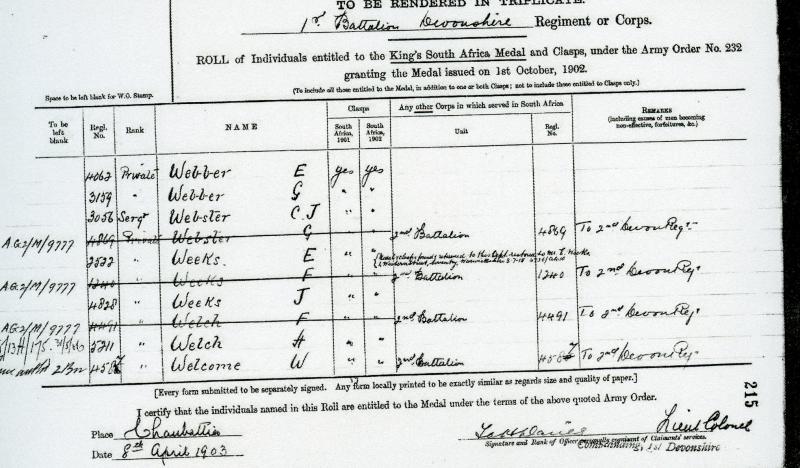 TO BE RENDERED IN TRIPLICATE.
1st Battalion Devonshire Regiment or Corps.
ROLL of Individuals entitled to the King's South Africa Medal and Clasps, under the Army Order No. 232
granting the Medal issued on 1st October, 1902.
Space to be left blank for W.O. Stamp.
(To include all those entitled to the Medal, in addition to one or both Clasps; not to include those entitled to Clasps only.)
To be left blank Regl. No. Rank NAME Clasps South Africa, 1901 South Africa, 1902 Any other Corps in which served in South Africa Unit Regl. No. REMARKS (including causes of men becoming non-effective, forfeitures, &c.)
4062 Private Webber E yes yes
3159 " Webber G " "
3056 Sergt Webster C.J " "
A.G.2/M/9777 4869 Private Webster G 2nd Battalion 4869 To 2nd Devon Regt.
2522 " Weeks. E " "
A.G.2/M/9777 1240 " Weeks F 2nd Battalion 1240 To 2nd Devon Regt
4828 " Weeks J " "
A.G.2/M/9777 4491 " Welch F 2nd Battalion 4491 To 2nd Devon Regt
5211 " Welch H " "
" Welcome W " " 2nd Battalion To 2nd Devon Regt
[Every form submitted to be separately signed. Any form locally printed to be exactly similar as regards size and quality of paper.]
215
I certify that the individuals named in this Roll are entitled to the Medal under the terms of the above quoted Army Order.
Place Chaubattia
Lieut Colonel
Signature and Rank of Officer personally cognisant of Claimants' services.
Date 8th April 1903
Commanding 1st Devonshire